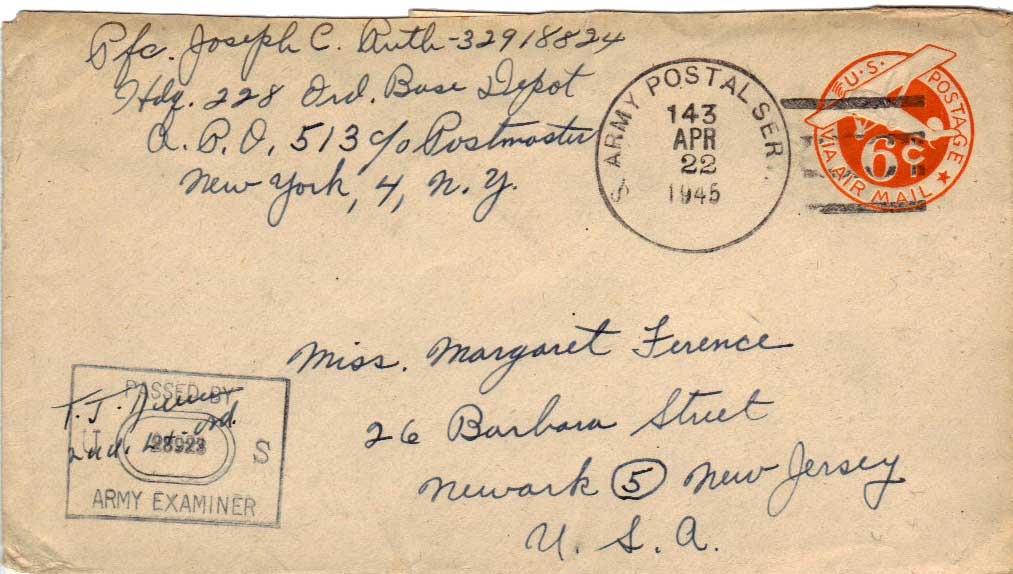 Pfc. Joseph C. Ruth - 32918824
Hdq. 228 Ord. Base Depot
A.P.O. 513 c/o Postmaster
New York, 4, N.Y.
S. ARMY POSTAL SER.
143
APR
22
1945
U.S. POSTAGE
6c
VIA AIR MAIL
Miss. Margaret Ference
26 Barbara Street
Newark 5 New Jersey
U. S. A.
PASSED BY
U S
28923
ARMY EXAMINER
T. J.
2nd. Lt. Ord.